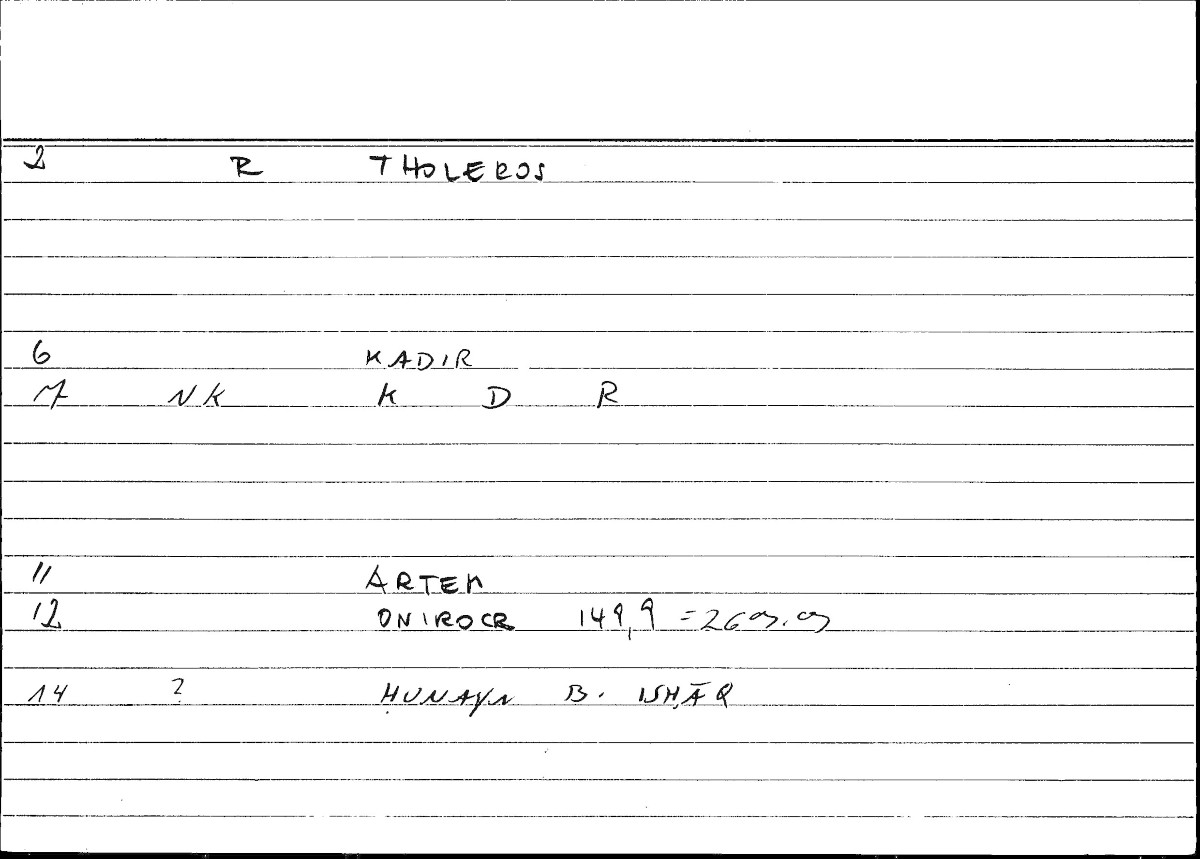 2 R THOLEROS
6 KADIR
7 NK K D R
11 ARTEM
12 ONIROCR 149,9 =
14 ? ḤUNAYN B. ISḤĀQ